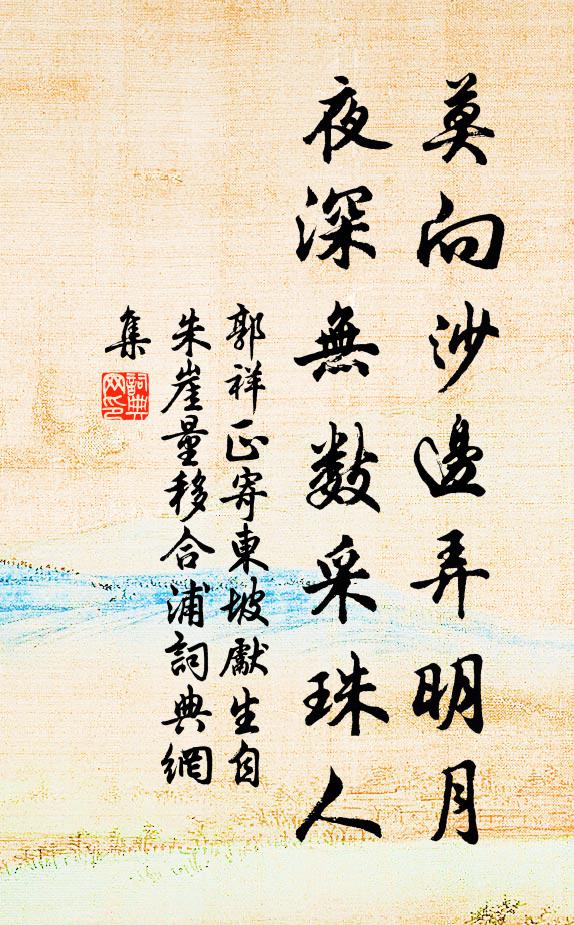 莫向沙邊弄明月
夜深無數采珠人
郭祥正寄東坡獻生自
朱崖量移合浦詞典網
集
詞典
网印